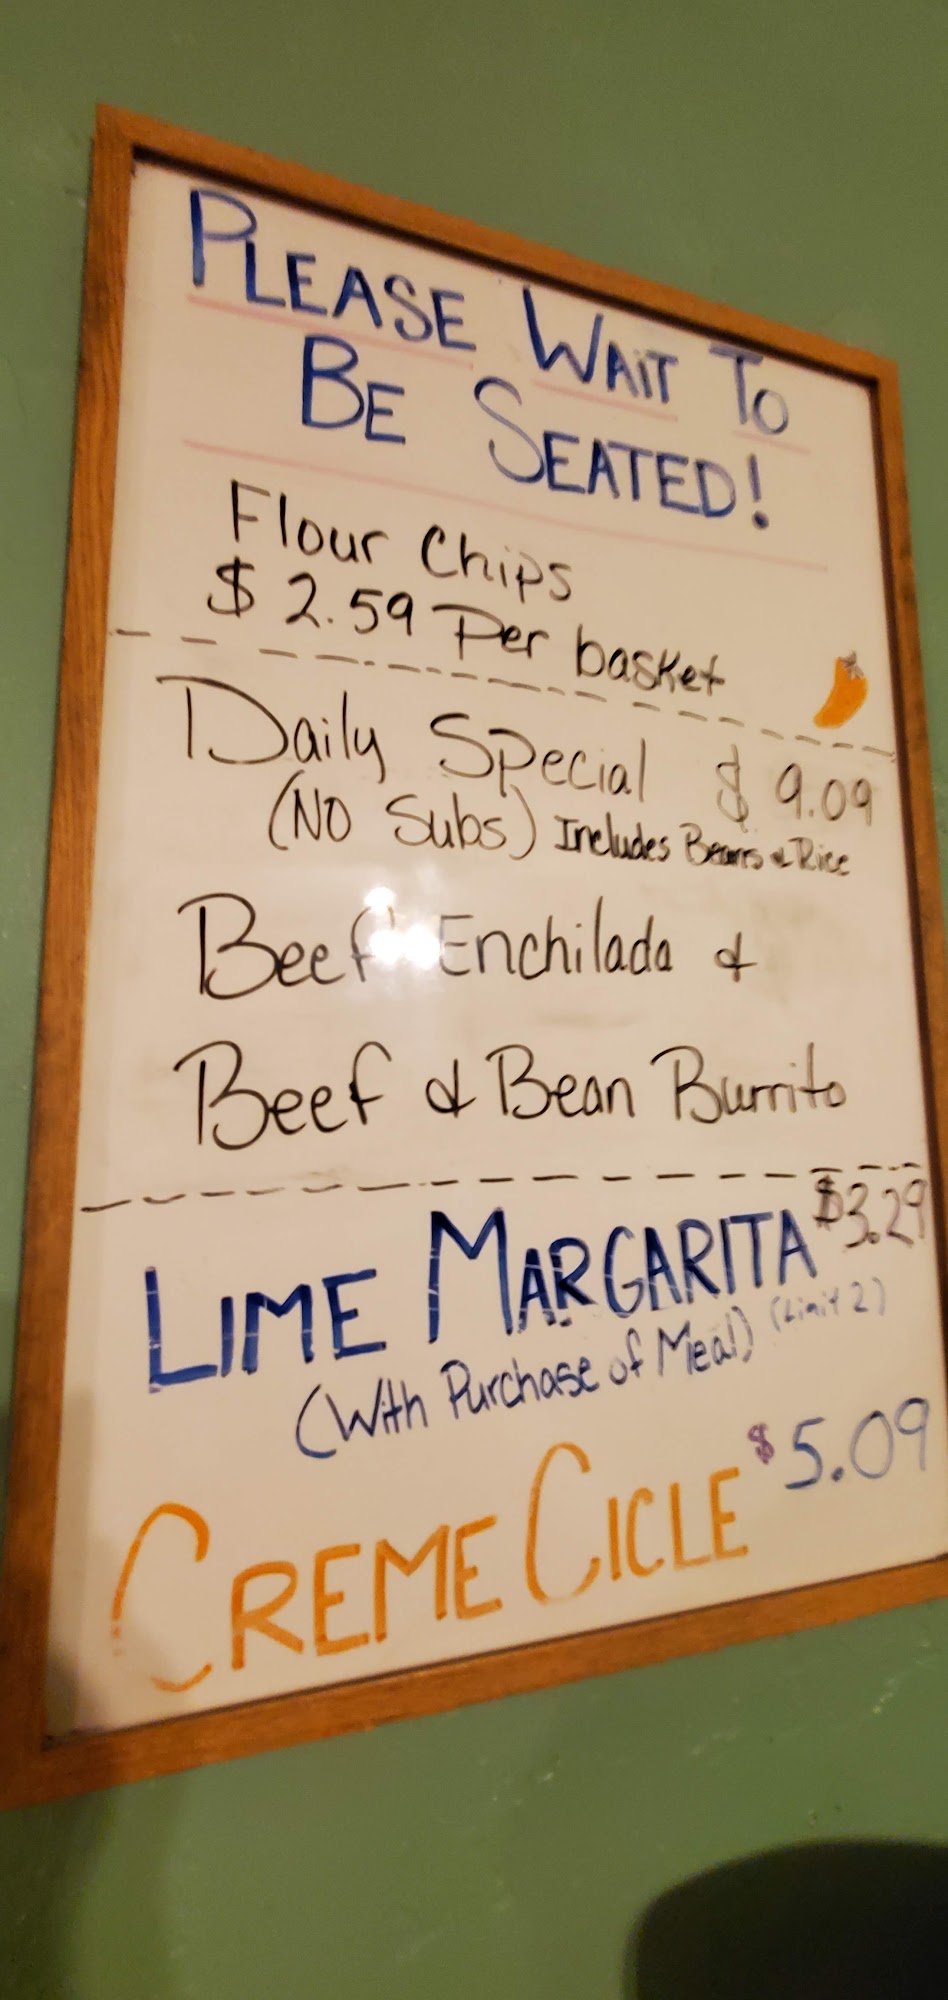 PLEASE WAIT TO
BE SEATED!
Flour Chips
$2.59 Per basket
Daily Special $9.09
(NO Subs) Includes Beans & Rice
Beef Enchilada &
Beef & Bean Burrito
LIME MARGARITA $3.29
(With Purchase of Meal) (Limit 2)
CREME CICLE $5.09